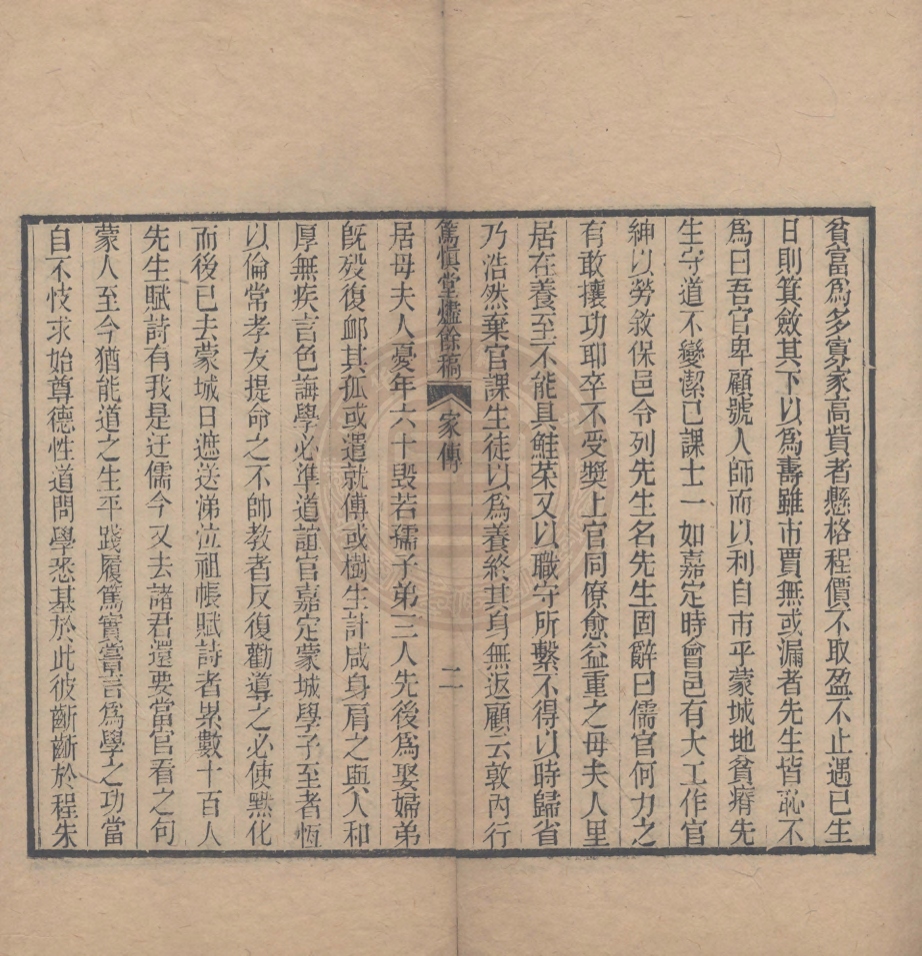 貧富爲多寡家高貲者懸格程價不取盈不止遇已生
日則箕斂其下以爲壽雖市賈無或漏者先生皆恥不
爲曰吾官卑顧號人師而以利自市乎蒙城地貧瘠先
生守道不變潔己課士一如嘉定時會邑有大工作官
紳以勞敘保邑令列先生名先生固辭曰儒官何力之
有敢攘功耶卒不受奬上官同僚愈益重之母夫人里
居在養至不能具鮭菜又以職守所繫不得以時歸省
乃浩然棄官課生徒以爲養終其身無返顧云敦內行
篤愼堂燼餘稿 家傳 二
居母夫人憂年六十毀若孺子弟三人先後爲娶婦弟
旣歿復卹其孤或遣就傅或樹生計咸身肩之與人和
厚無疾言色誨學必準道誼官嘉定蒙城學子至者恆
以倫常孝友提命之不帥教者反復勸導之必使黙化
而後已去蒙城日遮送涕泣祖帳賦詩者累數十百人
先生賦詩有我是迂儒今又去諸君還要當官看之句
蒙人至今猶能道之生平踐履篤實嘗言爲學之功當
自不忮求始尊德性道問學悉基於此彼齗齗於程朱